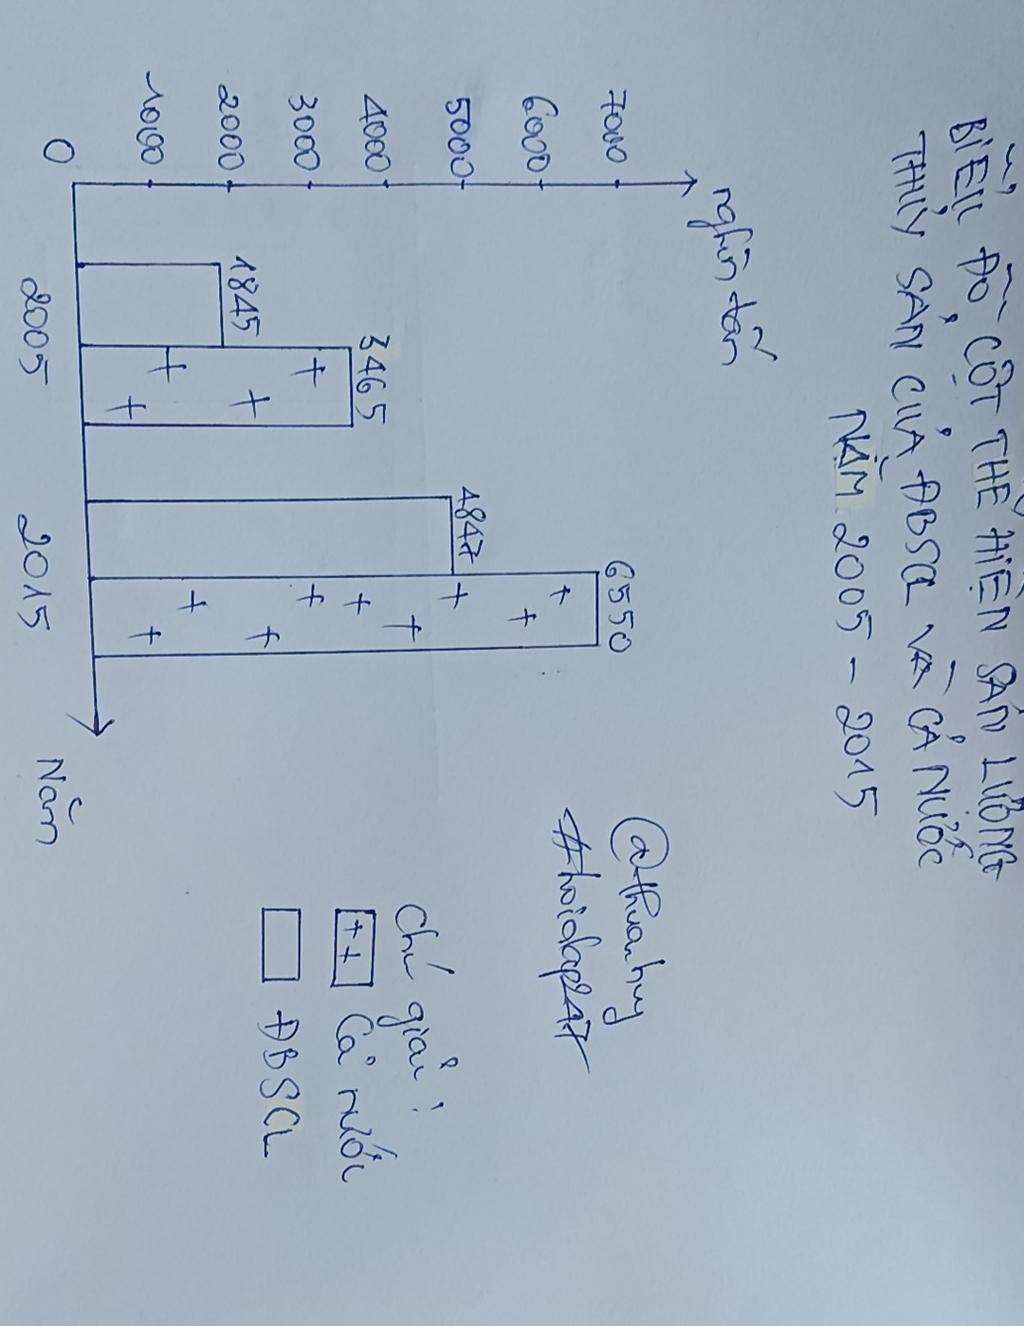 BIỂU ĐỒ CỘT THỂ HIỆN SẢN LƯỢNG
THỦY SẢN CỦA ĐBSCL VÀ CẢ NƯỚC
NĂM 2005 - 2015
nghìn tấn
7000
6000
5000
4000
3000
2000
1000
0
1845
3465
4847
6550
2005
2015
Năm
@thuanhuy
#hoidap247
Chú giải:
Cả nước
ĐBSCL